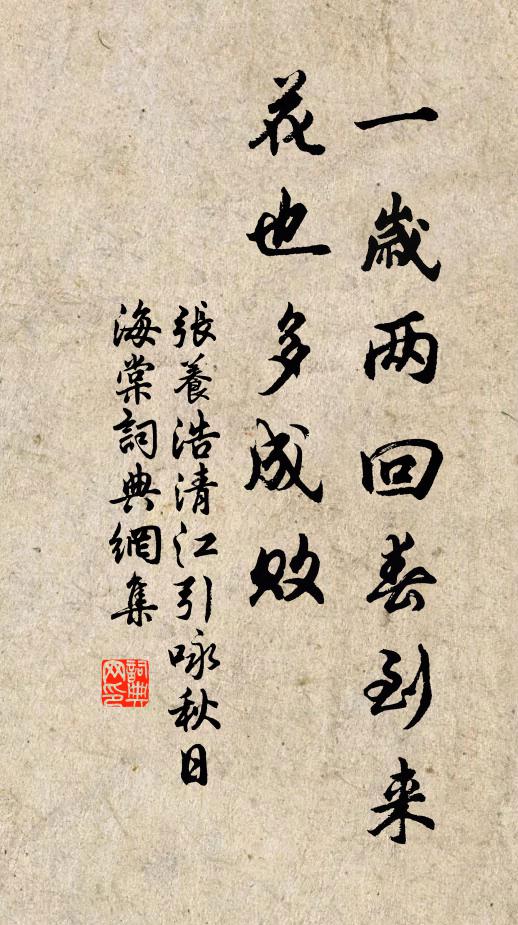 一歲两回春到来
花也多成败
張養浩清江引咏秋日
海棠詞典網集
詞典
网印